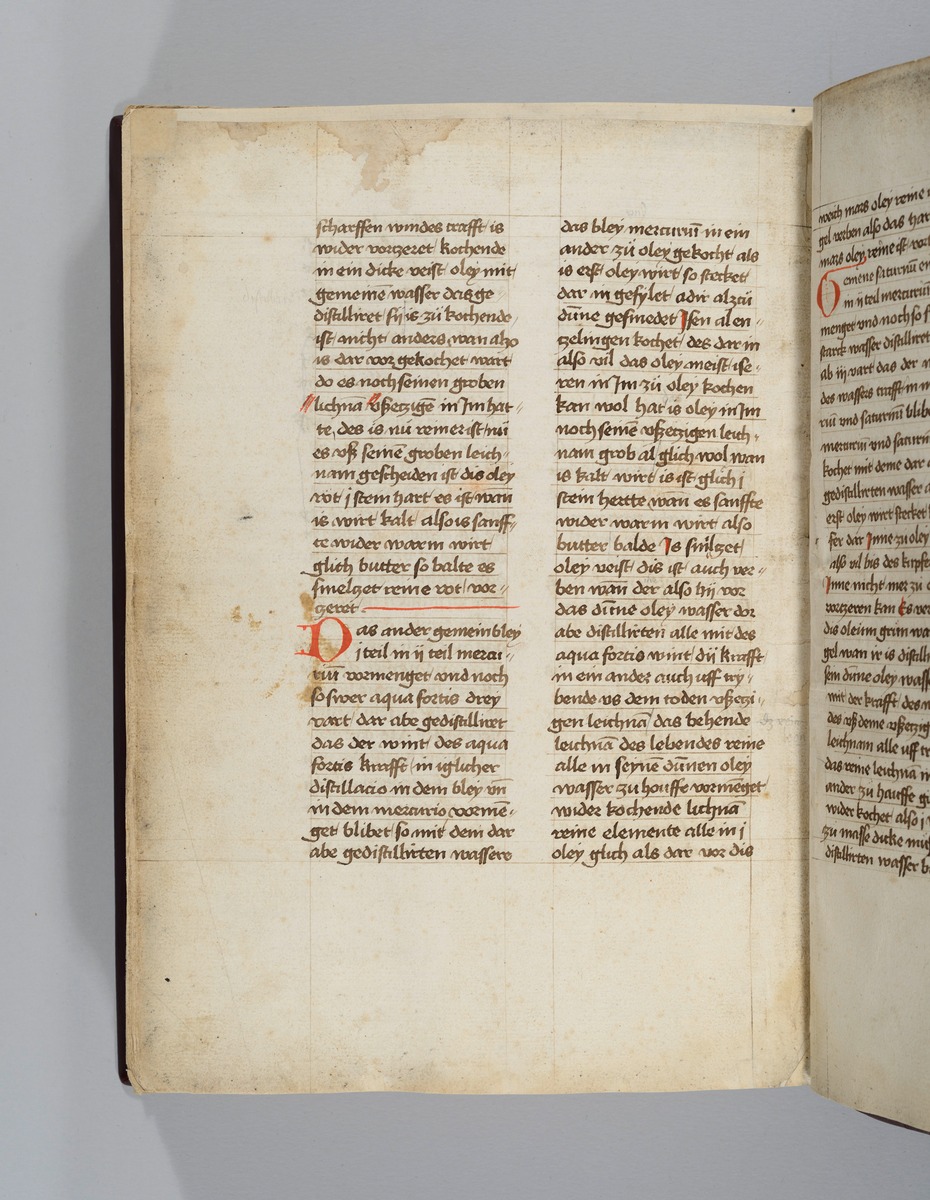 scharffen windes crafft is
wider vortzeret kochende
in ein dicke veist oley mit
gemeinē wasser das ge
distilliret sij is zů kochende
ist nicht anders wan also
is dar vor gekochet wart
do es noch seinen groben
lichnā vßetzigē in Jm hat
te des is nů reiner ist nů
es vß seinē groben leich
nam gescheiden ist dis oley
rot j stein hart es ist wan
is wirt kalt also is sanff
te wider warm wirt
glich butter so balte es
smeltzet reine rot vor
tzeret
Das ander gemein bley
j teil in ij teil mercu
riū vormenget vnd noch
so swer aqua fortis drey
vart dar abe gedistilliret
das der wint des aqua
fortis krafft in iglicher
distillacio in dem bley vn̄
in dem mercurio vormē
get blibet so mit dem dar
abe gedistillirten wassere
das bley mercuriū in ein
ander zů oley gekocht als
is erst oley wirt so stecket
dar in gefylet adir alzů
dūne gesmedet Jsen al en
tzelingen kochet des dar in
also vil das oley meist ise
ren in Jm zů oley kochen
kan wol hat is oley in Jm
noch seinē vßetzigen leich
nam grob al glich wol wan
is kalt wirt is ist glich j
stein hertte wan es sanffte
wider warm wirt also
butter balde Js smiltzet
oley veist dis ist auch ver
ben wan̄ der also hij vor
das dūne oley wasser dor
abe distillirten alle mit des
aqua fortis wint dij krafft
in ein ander auch uff try
bende vs dem toden vßetzi
gen leichnā das behende
leichnā des lebendes reine
alle in seynē dūnen oley
wasser zu houffe vormēget
wider kochende lichnā
reine elemente alle in j
oley glich als dar vor dis
weich mars oley reine
gel verben also das har
mars oley reine ist vor
mercuriū
menget vnd noch so
starck wasser distilliret
ab iij vart das der
des wassers crafft in
riū vnd saturnū blibe
mercuriū vnd saturn
kochet mit deme dar
gedistillirten wasser
erst oley wirt stecket
fer dar Jnne zu oley
also vil bis des kupfe
Jnne nicht mer zu
vortzeren kan Es ver
dis oleum grun
gel wan ir is distill
sein dūne oley wass
mit der krafft des
des vß deme vßetzig
leichnam alle uff
das reine leichnā
ander zu hauffe
wider kochet also j
zu masse dicke
distillirten wasser